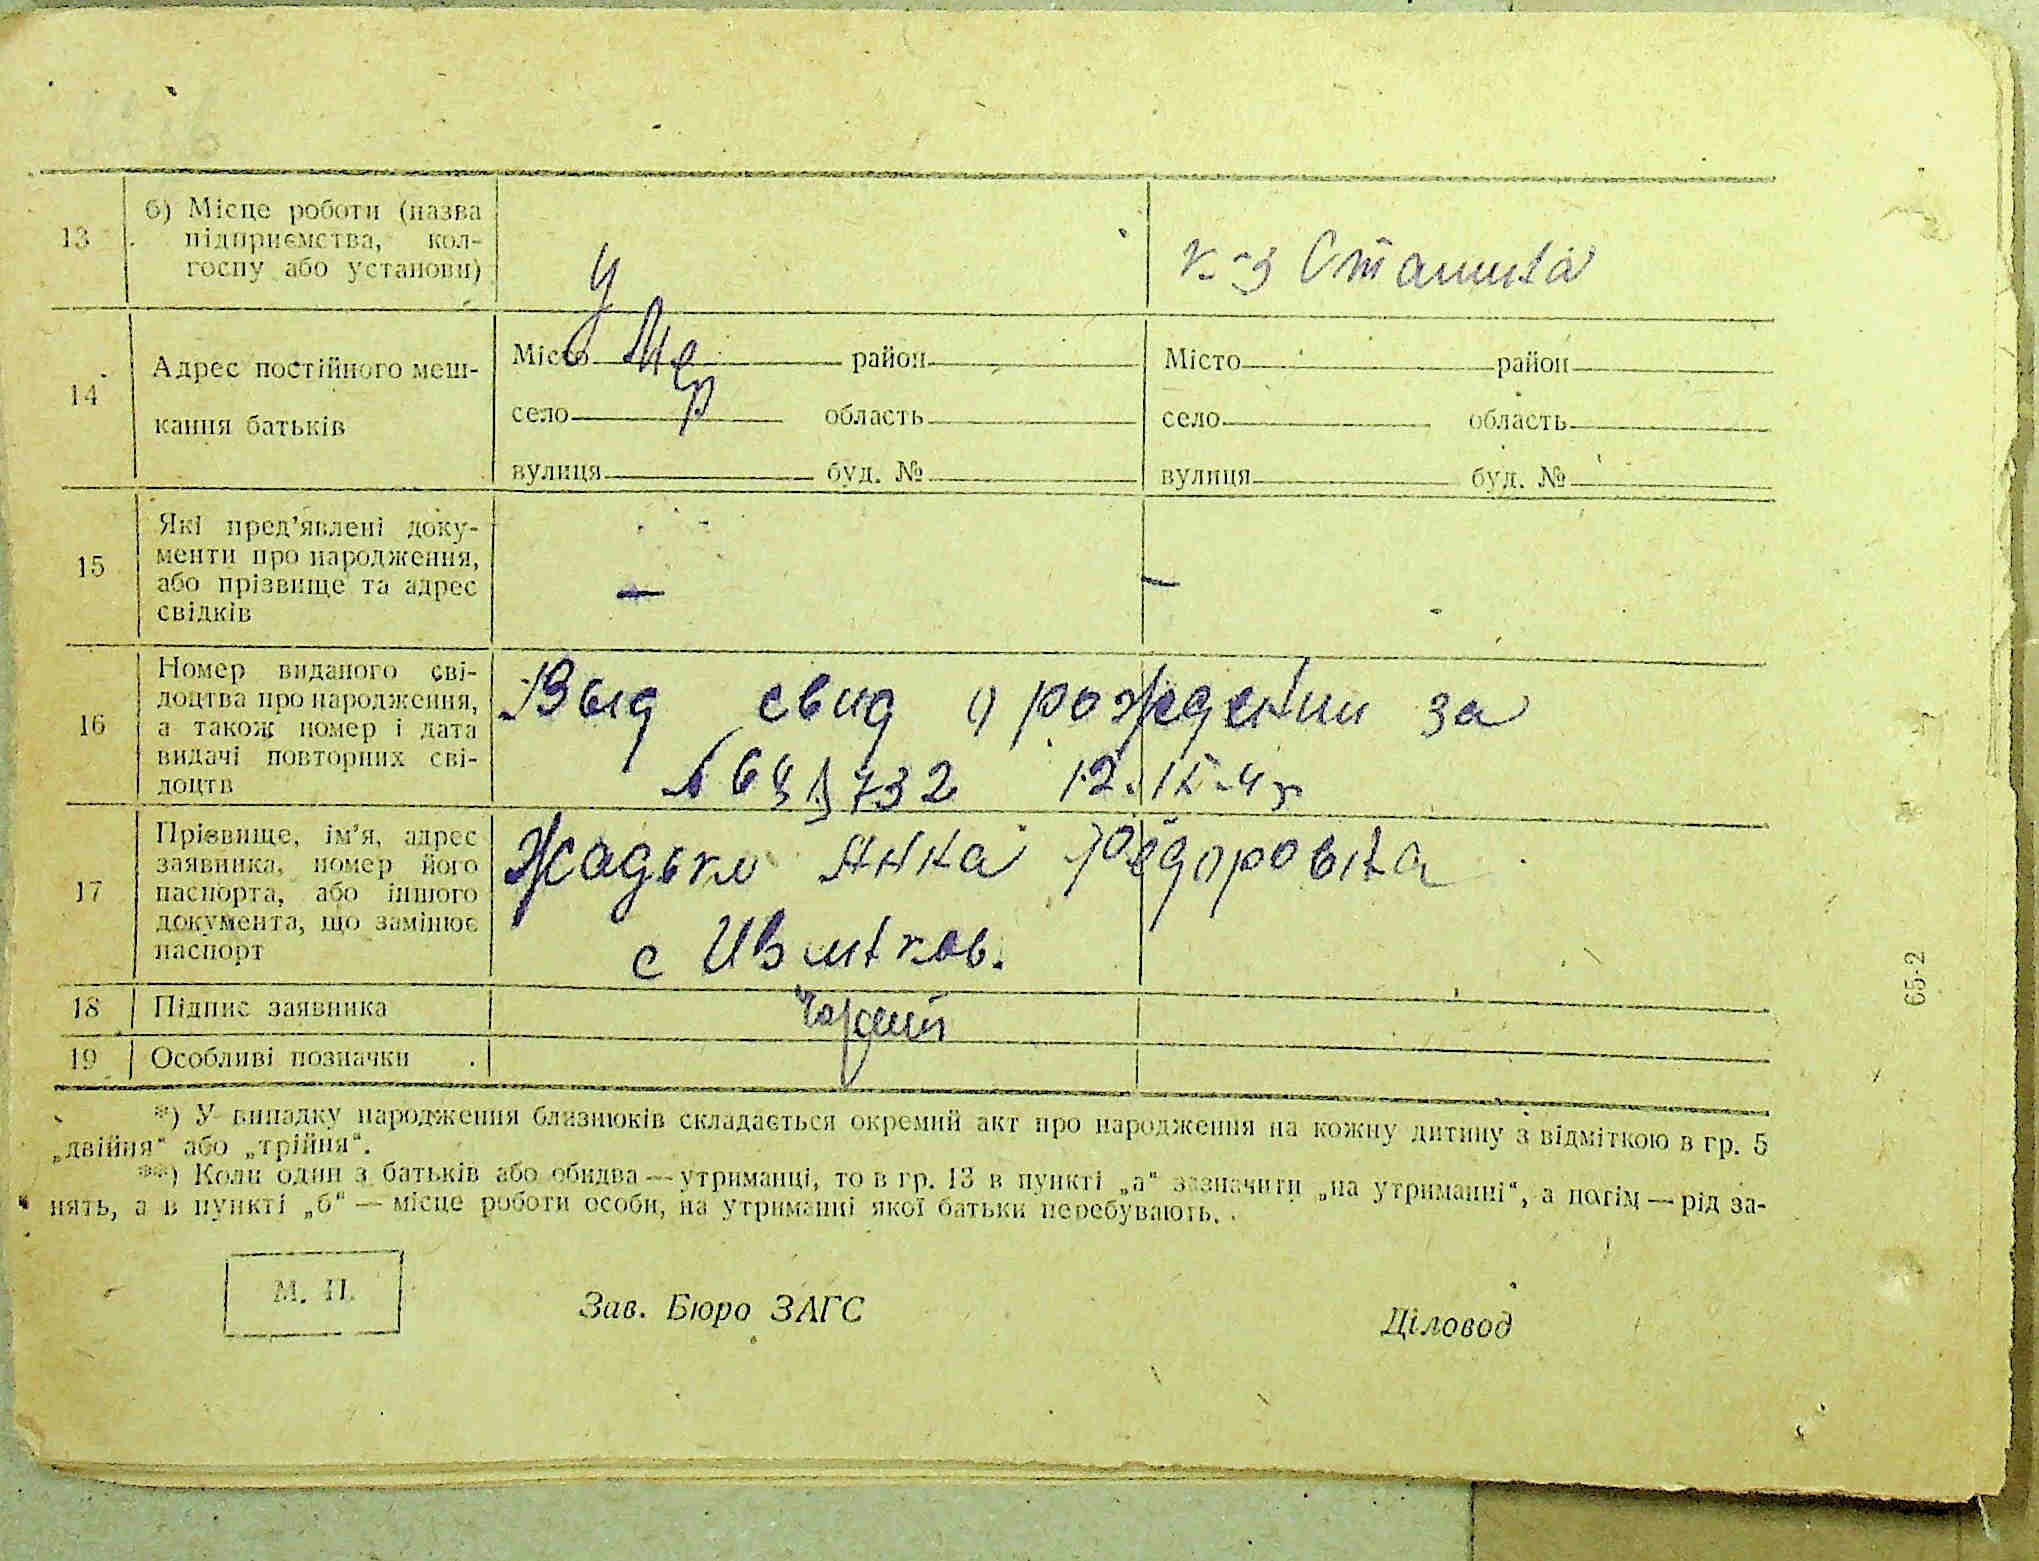 13
б) Місце роботи (назва
підприємства, кол-
госпу або установи)
к-з Сталина
умер
14
Адрес постійного меш-
кання батьків
Місто район
село область
вулиця буд. №
Місто район
село область
вулиця буд. №
15
Які пред’явлені доку-
менти про народження,
або прізвище та адрес
свідків
—
—
16
Номер виданого сві-
доцтва про народження,
а також номер і дата
видачі повторних сві-
доцтв
Выд свид о рождении за
732 12.
17
Прізвище, ім’я, адрес
заявника, номер його
паспорта, або іншого
документа, що замінює
паспорт
Жадько Анна Фёдоровна
с
18
Підпис заявника
19
Особливі позначки
*) У випадку народження близнюків складається окремий акт про народження на кожну дитину з відміткою в гр. 5
„двійня“ або „трійня“.
**) Коли один з батьків або обидва — утриманці, то в гр. 13 в пункті „а“ зазначити „на утриманні“, а потім — рід за-
нять, а в пункті „б“ — місце роботи особи, на утриманні якої батьки перебувають.
М. П.
Зав. Бюро ЗАГС
Діловод
65-2